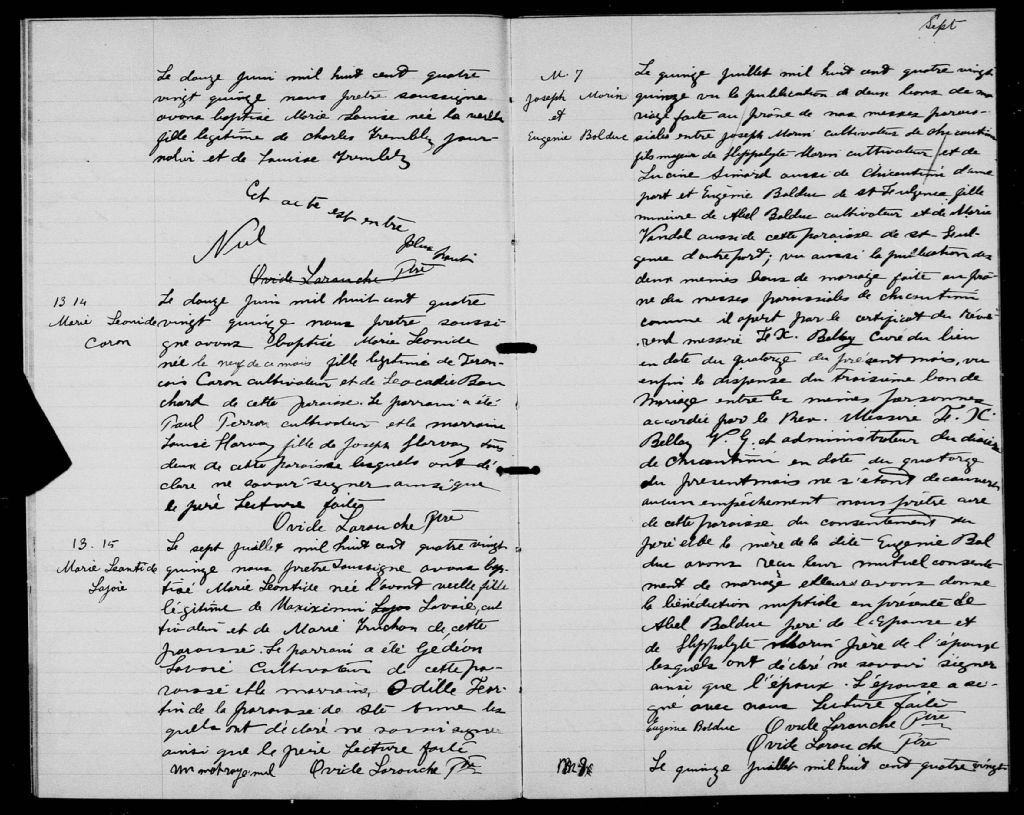 Le douze juin mil huit cent quatre
vingt quinze nous prêtre soussigné
avons baptisé Marie Louise née la veille
fille legitime de Charles Trembly jour-
nalier et de Louise Trembly
Cet acte est entré
plus haut
Nul
Ovide Larouche Ptre
B 14
Marie Leonide
Caron
Le douze juin mil huit cent quatre
vingt quinze nous pretre soussi
gné avons baptisé Marie Leonide
née le neuf de ce mois fille legitime de Fran-
cois Caron cultivateur et de Leocadie Bou
chard de cette paroisse. Le parrain a été
Paul Perron cultivateur et la marraine
Louise Harvay fille de Joseph Harvay tous
deux de cette paroisse lesquels ont dé
claré ne savoir signer ainsi que
le père Lecture faite
Ovide Larouche Ptre
B. 15
Marie Leontide
Lajoie
Le sept juillet mil huit cent quatre vingt
quinze nous pretre soussigné avons bap
tisé Marie Leontide née l'avant veille fille
légitime de Maximin Lavoie, cul
tivateur et de Marie Truchon de cette
paroisse. Le parrain a été Gédéon
Savard Cultivateur de cette pa-
roisse et la marraine Odille For-
tin de la paroisse de Ste Anne les
quels ont déclaré ne savoir signer
ainsi que le père Lecture faite
Un mot rayé nul Ovide Larouche Ptre
Sept
M. 7
Joseph Morin
et
Eugenie Bolduc
Le quinze juillet mil huit cent quatre vingt
quinze vu la publication de deux bans de ma
riage faite au prône de nos messes parois-
siales entre Joseph Morin cultivateur de Chicoutimi
fils majeur de Hippolyte Morin cultivateur et de
Lucine Simard aussi de Chicoutimi d'une
part et Eugénie Bolduc de St Fulgence fille
mineure de Abel Bolduc cultivateur et de Marie
Vandal aussi de cette paroisse de St Ful-
gence d'autre part; vu aussi la publication des
deux memes bans de mariage faite au prô-
ne des messes paroissiales de Chicoutimi
comme il apert par le certificat du Révé-
rend messire F. X. Belley Curé du lieu
en date du quatorze du présent mois, vu
enfin la dispense du troisième ban de
mariage entre les memes personnes
accordée par le Rev. Messire F. X.
Belley V. G. et administrateur du diocèse
de Chicoutimi en date du quatorze
du present mois ne s'étant découvert
aucun empêchement nous prêtre curé
de cette paroisse du consentement du
père et de la mère de la dite Eugenie Bol
duc avons reçu leur mutuel consente
ment de mariage et leur avons donné
la bénédiction nuptiale en présence de
Abel Bolduc père de l'Epouse et
de Hippolyte Morin père de l'époux
lesquels ont déclaré ne savoir signer
ainsi que l'époux. L'épouse a si-
gné avec nous Lecture faite
Eugenie Bolduc Ovide Larouche Ptre
Ovide Larouche Ptre
M. 8
Le quinze juillet mil huit cent quatre vingt